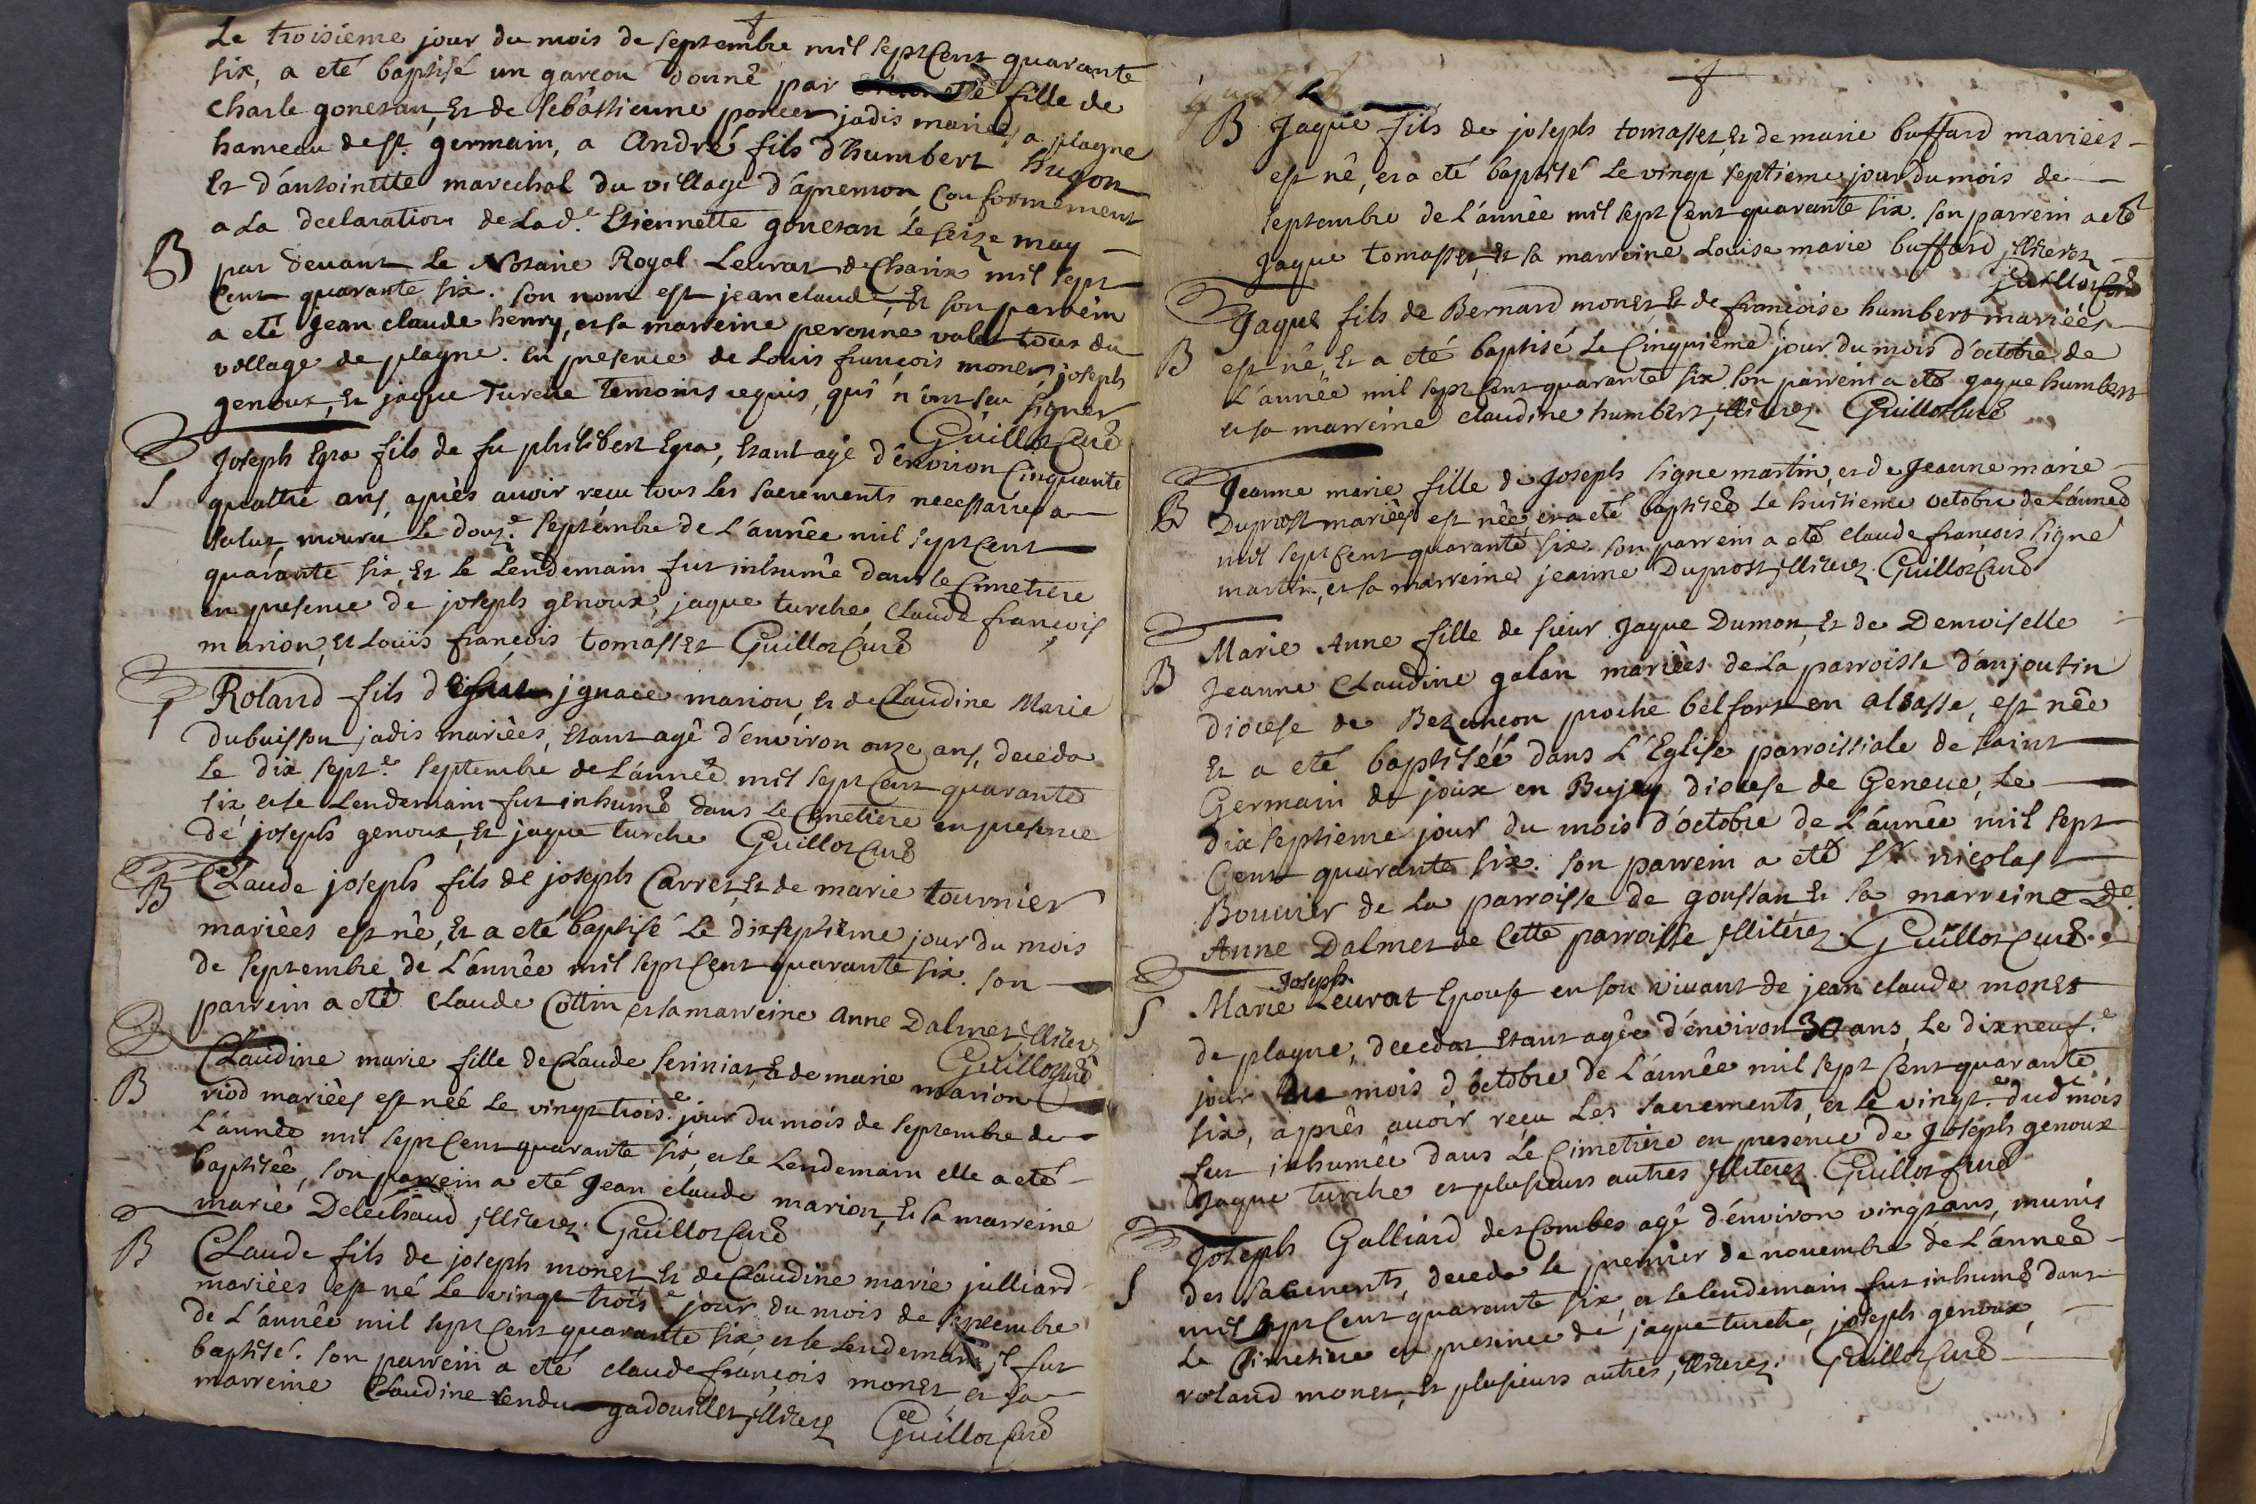 Le troisième jour du mois de septembre mil sept Cent quarante
six, a eté baptisé un garcon donné par fille de
Charle gonetan, Et de sebastienne poncet jadis mariés, a plagne
hameau de st. germain, a André fils d'humbert hugon
Et d'antoinette marechal du village d'apremon, Conformement
a La declaration de Lad.e Etiennette gonetan le seize may
B par devant Le Notaire Royal Levrat de Charix mil sept
Cent quarante six. son nom est jean claude, Et son parrein
a eté jean claude henry, et sa marreine peronne valet tous du
village de plagne. En presence de Louis françois monet, joseph
genoux, Et jaque turche temoins requis, qui n'ont sçu signer
Guillot Curé
Joseph Egra fils de fu philibert Egra, Etant agé d'environ Cinquante
S quattre ans, après avoir recu tous les sacrements necessaires a
salut, mouru le douz.e septembre de L'année mil sept Cent
quarante six, Et le Lendemain fut inhumé dans le Cimetiere
en presence de joseph genoux, jaque turche, Claude françois
marion, Et Louis françois tomasset Guillot Curé
S Roland fils d jgnace marion, Et de Claudine Marie
dubuisson jadis mariées, Etant agé d'environ onze ans, deceda
le dix sept.e septembre de L'année mil sept Cent quarante
six, et le Lendemain fut inhumé dans Le Cimetiere en presence
de joseph genoux, Et jaque turche Guillot Curé
B Claude joseph fils de joseph Carret, Et de marie tournier
mariées est né, Et a eté baptisé Le dixseptieme jour du mois
de septembre de L'année mil sept Cent quarante six. son
parrein a eté Claude Cottin et sa marreine Anne Dalmet, jlliter
Guillot Curé
Claudine marie fille de Claude seriniat, Et de marie marion
B riod mariées est née Le vingt trois.e jour du mois de septembre de
L'année mil sept Cent quarante six, et le Lendemain elle a eté
baptisée, son parrein a eté Jean claude marion, Et sa marreine
marie Deléchaud jlliterez. Guillot Curé
B Claude fils de joseph monet, Et de Claudine marie julliard
mariées est né Le vingt trois.e jour du mois de septembre
de L'année mil sept Cent quarante six, et le Lendemain jl fut
baptisé. son parrein a eté claude françois monet, et sa
marreine Claudine rendu gadouillet, jlliterez Guillot Curé
B Jaque fils de joseph tomasset, Et de marie buffard mariées
est né, et a eté baptisé Le vingt septieme jour du mois de
septembre de L'année mil sept Cent quarante six. son parrein a eté
Jaque tomasset, Et sa marreine Louise marie buffard jlliterez
Guillot Curé
Jaque fils de Bernard monet, Et de françoise humbert mariées
B est né, Et a eté baptisé Le Cinquieme jour du mois d'octobre de
L'année mil sept Cent quarante six. son parrein a eté jaque humbert
et sa marreine claudine humbert, jlliterez Guillot Curé
Jeanne marie fille de Joseph signe martin, et de Jeanne marie
B Duprost mariées est née, et a eté baptisée Le huitieme octobre de L'année
mil sept Cent quarante six. son parrein a eté claude françois signe
martin, et sa marreine jeanne Duprost, jlliterez. Guillot Curé
Marie Anne fille de sieur Jaque Dumon, Et de Demoiselle
B Jeanne Claudine galan mariées de La parroisse d'anjoutin
Diocese de Bezançon proche belfort en alsasse, est née
Et a eté baptisée dans L'Eglise parroissiale de saint
Germain de joux en Bujey diocese de Geneve, Le
dix septieme jour du mois d'octobre de L'année mil sept
Cent quarante six. son parrein a eté Sr. nicolas
Bouvier de La parroisse de goussan Et sa marreine De.
Anne Dalmet de Cette parroisse jlliterez. Guillot Curé.
Joseph
S Marie Levrat Epouse en son vivant de jean claude monet
de plagne, decedat Etant agée d'environ 30 ans, Le dix neuf.e
jour du mois d'octobre de L'année mil sept Cent quarante
six, aprés avoir reçu Les sacrements, et le vingt.e dud mois
fut inhumée dans Le Cimetiere en presence de Joseph genoux
Jaque turche et plusieurs autres jlliterez. Guillot Curé
Joseph Galliard des Combes agé d'environ vingt ans, munis
S des sacrements, deceda le premier de novembre de L'année
mil sept Cent quarante six, et le lendemain fut inhumé dans
Le Cimetiere en presence de jaque turche, joseph genoux,
roland monet, Et plusieurs autres, jlliterez. Guillot Curé